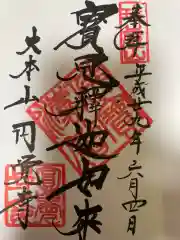 奉拝 平成廿九年六月四日
寳冠釋迦如来
大本山円覚寺